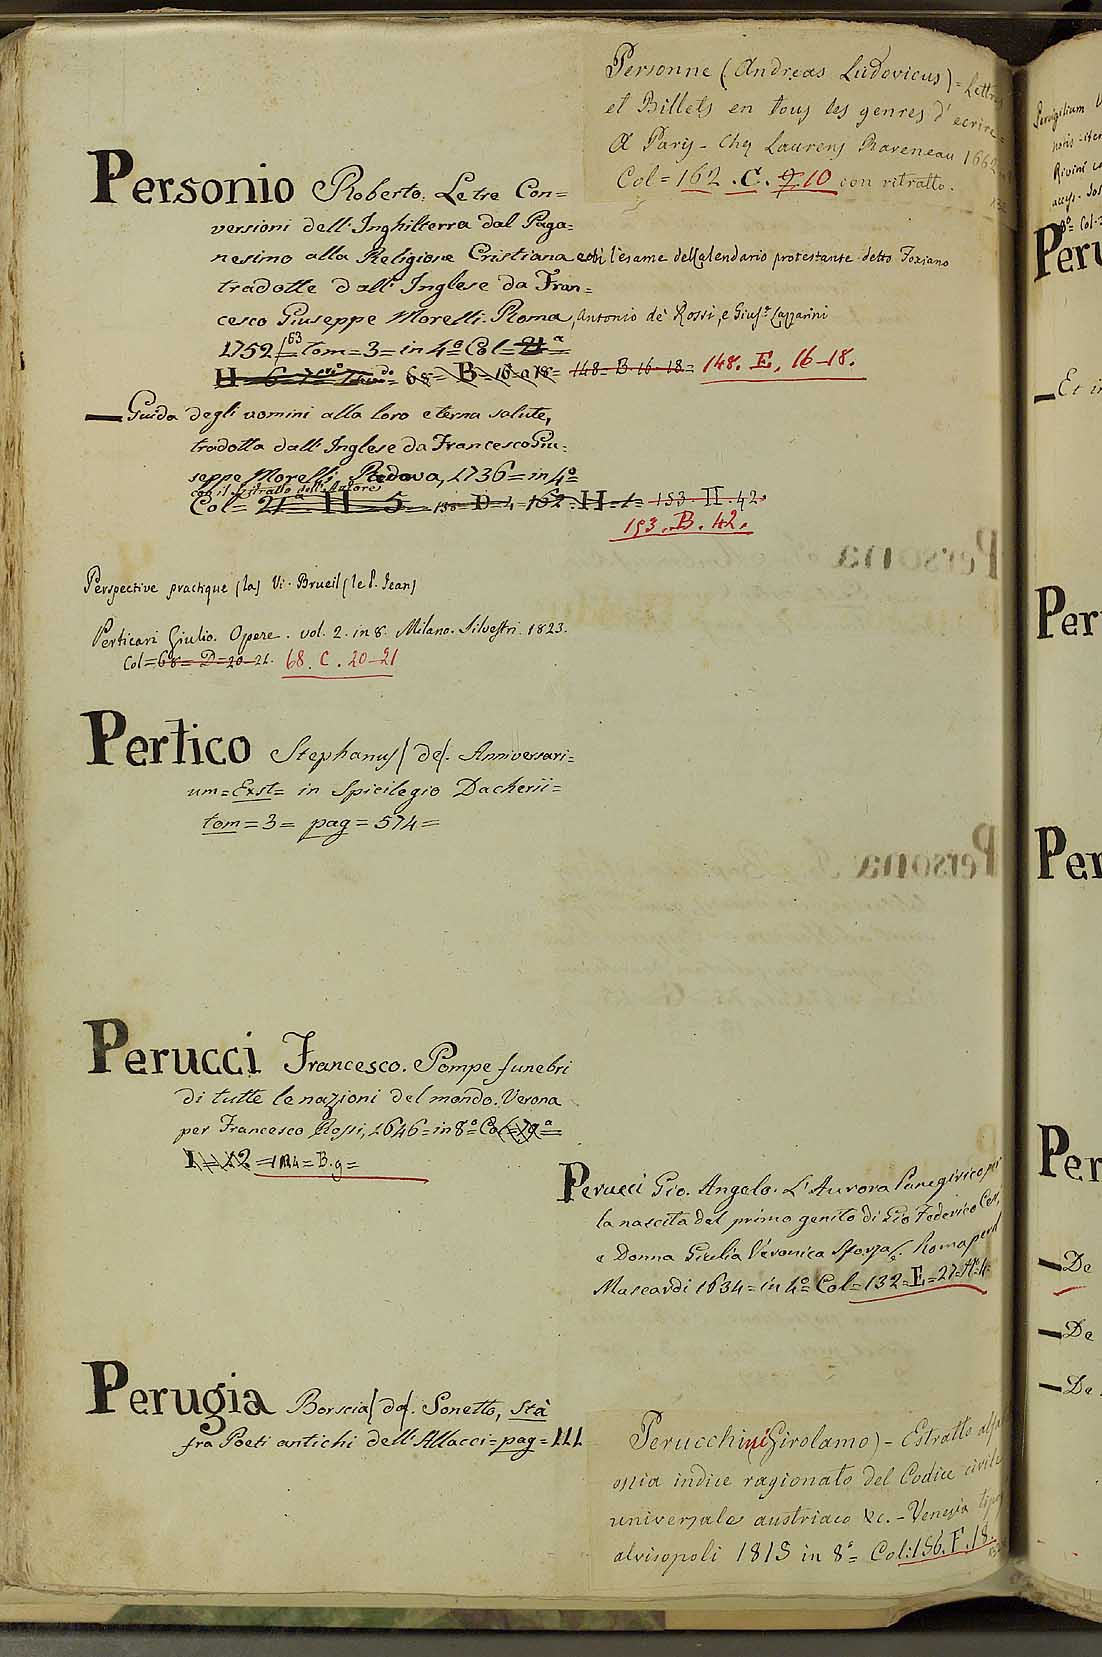 Personne (Andreas Ludovicus) = Lettres
et Billets en tous les genres d'ecrire =
A Paris - Chez Laurens Raveneau 1662
Col = 162 . C . 9. 10 con ritratto.
Personio Roberto. Le tre Con=
versioni dell'Inghilterra dal Paga=
nesimo alla Religione Cristiana l'esame del Calendario protestante detto Foxiano
tradotte dall'Inglese da Fran=
cesco Giuseppe Morelli. Roma, Antonio de' Rossi, e Gius.e Lazzarini
1752/63 = tom = 3 = in 4.o Col = 21.a =
H = 6 = 68 = B = 16 a 18 = 148 = B 16-18 = 148. E, 16-18.
— Guida degli uomini alla loro eterna salute,
tradotta dall'Inglese da Francesco Giu=
seppe Morelli. Padova, 1736 = in 4.o
con il Ritratto dell'Autore
Col = 21.a H = 5 D = 4 = 162 . H = 1 = 153. H . 42.
153. B. 42.
Perspective practique (la) Vi. Brueil (le P. Jean)
Perticari Giulio. Opere. vol. 2. in 8. Milano. Silvestri. 1823.
Col = 68 = D = 20-21. 68. C. 20-21
Pertico Stephanus (de). Anniversari=
um = Exst = in Spicilegio Dacherii =
tom = 3 = pag = 574 =
Perucci Francesco. Pompe funebri
di tutte le nazioni del mondo. Verona
per Francesco Rossi, 1646 = in 8.o Col = 79.a =
I = 12 = B. 9 =
Perucci Gio. Angelo. L'Aurora Panegirico per
la nascita del primo genito di Gio Federico Cesi,
e Donna Giulia Veronica Sforza. Roma per il
Mascardi 1634 = in 4.o Col = 132 = E = 27 = N.o 4 =
Perugia Borscia (da). Sonetto, Stà
fra Poeti antichi dell'Allacci = pag = 111
Perucchini Girolamo) - Estratto alfa
ossia indice ragionato del Codice civile
universale austriaco &c. - Venezia tipog
alvisopoli 1815 in 8.o = Col: 156. F. 18.
Pervigilium
Rivini
8.o Col.
Peru
— Et in
Per
Per
Per
— De
— De
— De